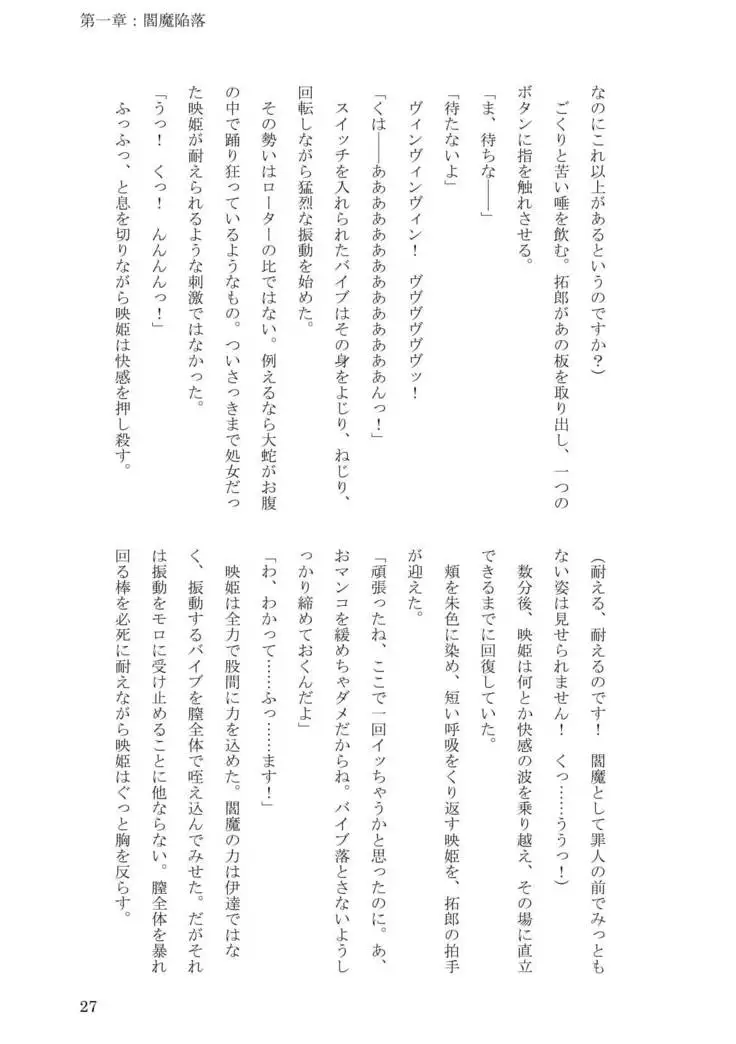 第一章：閻魔陥落
なのにこれ以上があるというのですか？）
　ごくりと苦い唾を飲む。拓郎があの板を取り出し、一つの
ボタンに指を触れさせる。
「ま、待ちな――」
「待たないよ」
　ヴィンヴィンヴィン！　ヴヴヴヴヴヴッ！
「くは――あああああああああああああああんっ！」
　スイッチを入れられたバイブはその身をよじり、ねじり、
回転しながら猛烈な振動を始めた。
　その勢いはローターの比ではない。例えるなら大蛇がお腹
の中で踊り狂っているようなもの。ついさっきまで処女だっ
た映姫が耐えられるような刺激ではなかった。
「うっ！　くっ！　んんんんっ！」
　ふっふっ、と息を切りながら映姫は快感を押し殺す。
（耐える、耐えるのです！　閻魔として罪人の前でみっとも
ない姿は見せられません！　くっ……ううっ！）
　数分後、映姫は何とか快感の波を乗り越え、その場に直立
できるまでに回復していた。
　頬を朱色に染め、短い呼吸をくり返す映姫を、拓郎の拍手
が迎えた。
「頑張ったね、ここで一回イッちゃうかと思ったのに。あ、
おマンコを緩めちゃダメだからね。バイブ落とさないようし
っかり締めておくんだよ」
「わ、わかって……ふっ……ます！」
　映姫は全力で股間に力を込めた。閻魔の力は伊達ではな
く、振動するバイブを膣全体で咥え込んでみせた。だがそれ
は振動をモロに受け止めることに他ならない。膣全体を暴れ
回る棒を必死に耐えながら映姫はぐっと胸を反らす。
27